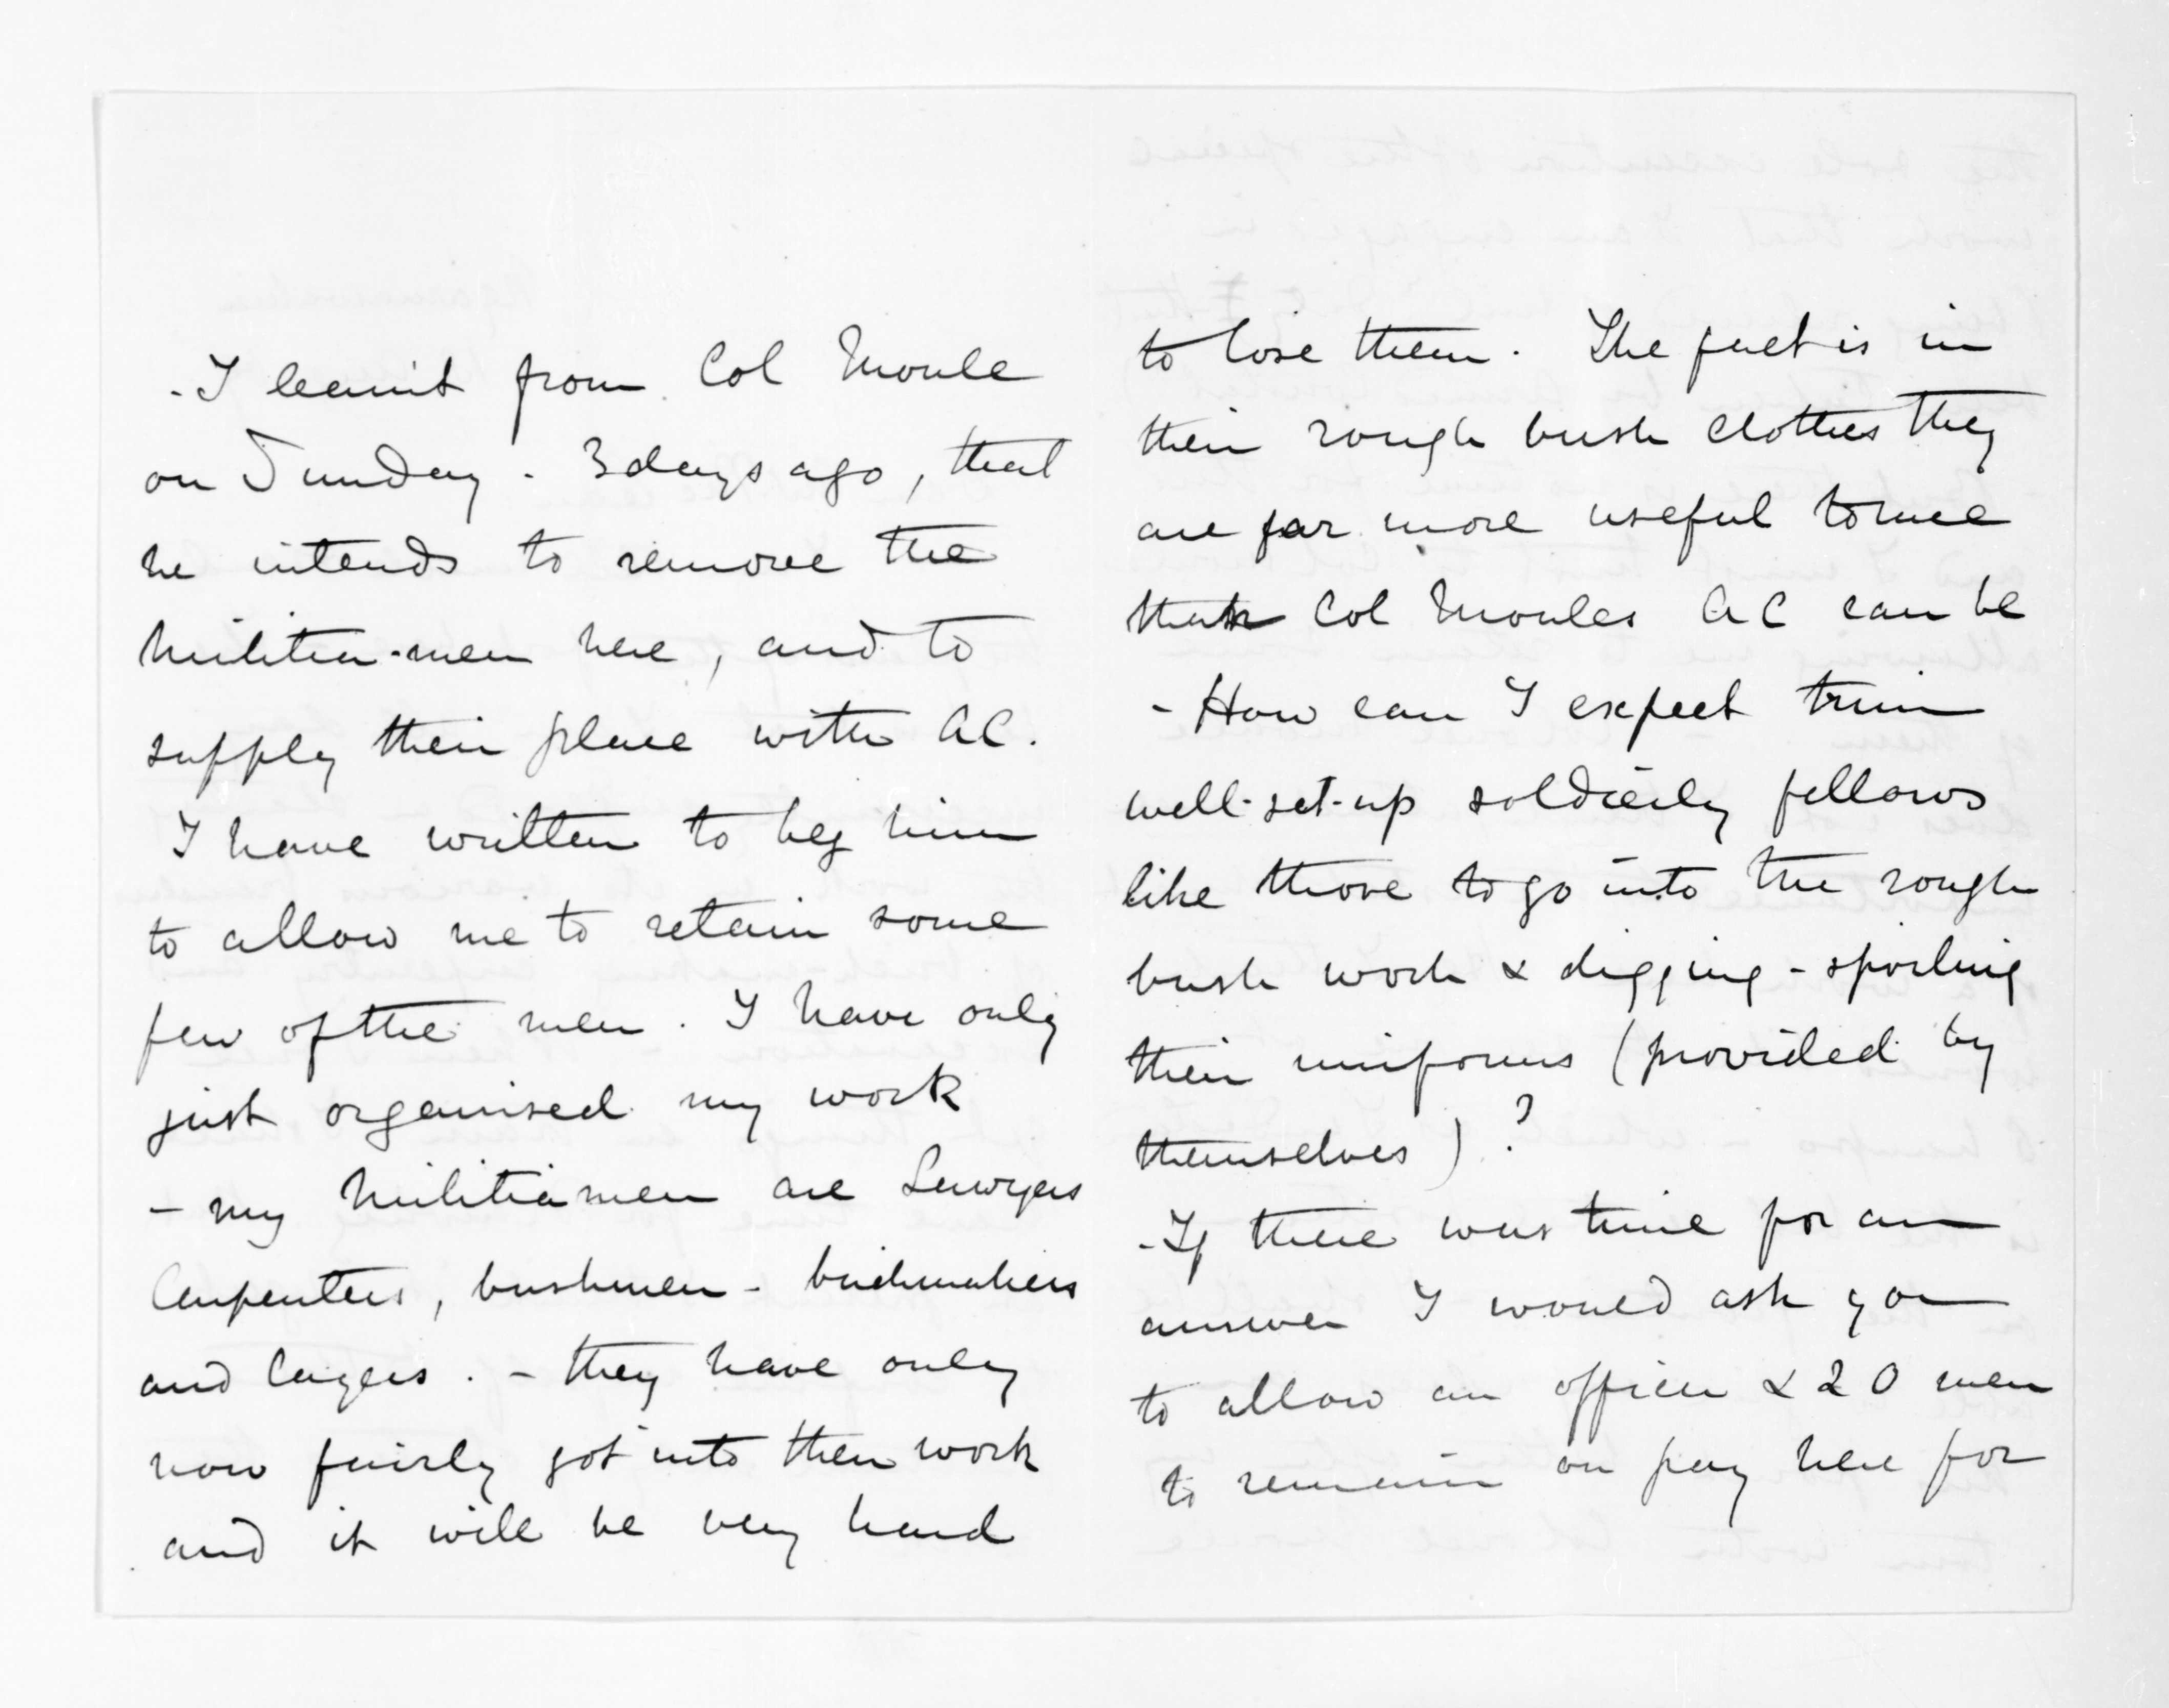 - I learnt from Col Moule
on Sunday - 3 days ago, that
he intends to remove the
Militia-men here, and to
supply their place with AC.
I have written to beg him
to allow me to retain some
few of the men. I have only
just organised my work
- my Militiamen are Sawyers
Carpenters, bushmen - brickmakers
and layers. - they have only
now fairly got into their work
and it will be very hard
to lose them. The fact is in
their rough bush clothes they
are far more useful to me
than Col Moules AC can be
- How can I expect trim
well-set-up soldierly fellows
like those to go into the rough
bush work & digging - spoiling
their uniforms (provided by
themselves) ?
- If there was time for an
answer I would ask you
to allow an officer & 20 men
to remain on pay here for